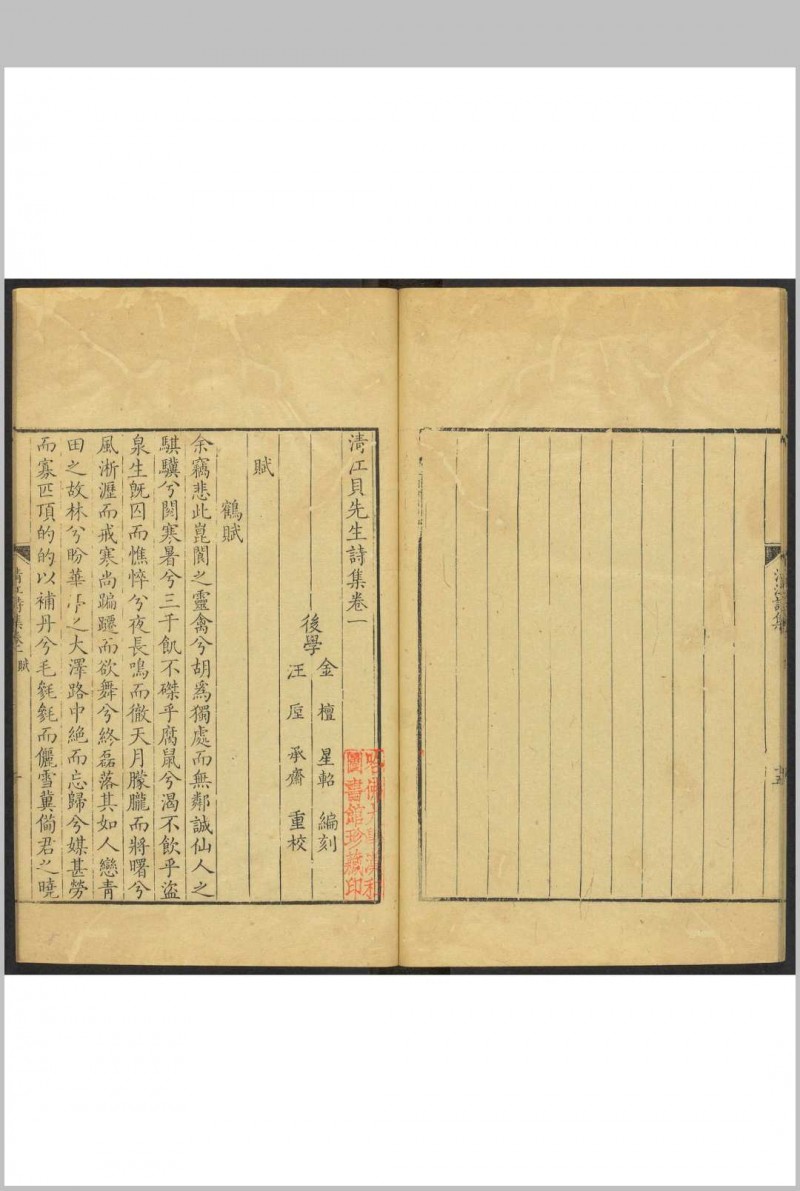 清江詩集
清江貝先生詩集卷一
後學
金檀星軺編刻
汪垕承齋重校
哈佛大學漢和
圖書館珍藏印
賦
鶴賦
余竊悲此崑閬之靈禽兮胡爲獨處而無鄰誠仙人之
騏驥兮閱寒暑兮三千飢不磔乎腐鼠兮渴不飲乎盜
泉生旣囚而憔悴兮夜長鳴而徹天月朦朧而將曙兮
風淅瀝而戒寒尚蹁躚而欲舞兮終磊落其如人戀青
田之故林兮盼華亭之大澤路中絶而忘歸兮媒甚勞
而寡匹頂的的以補丹兮毛毵毵而儷雪冀倘君之曉
清江詩集卷一 賦